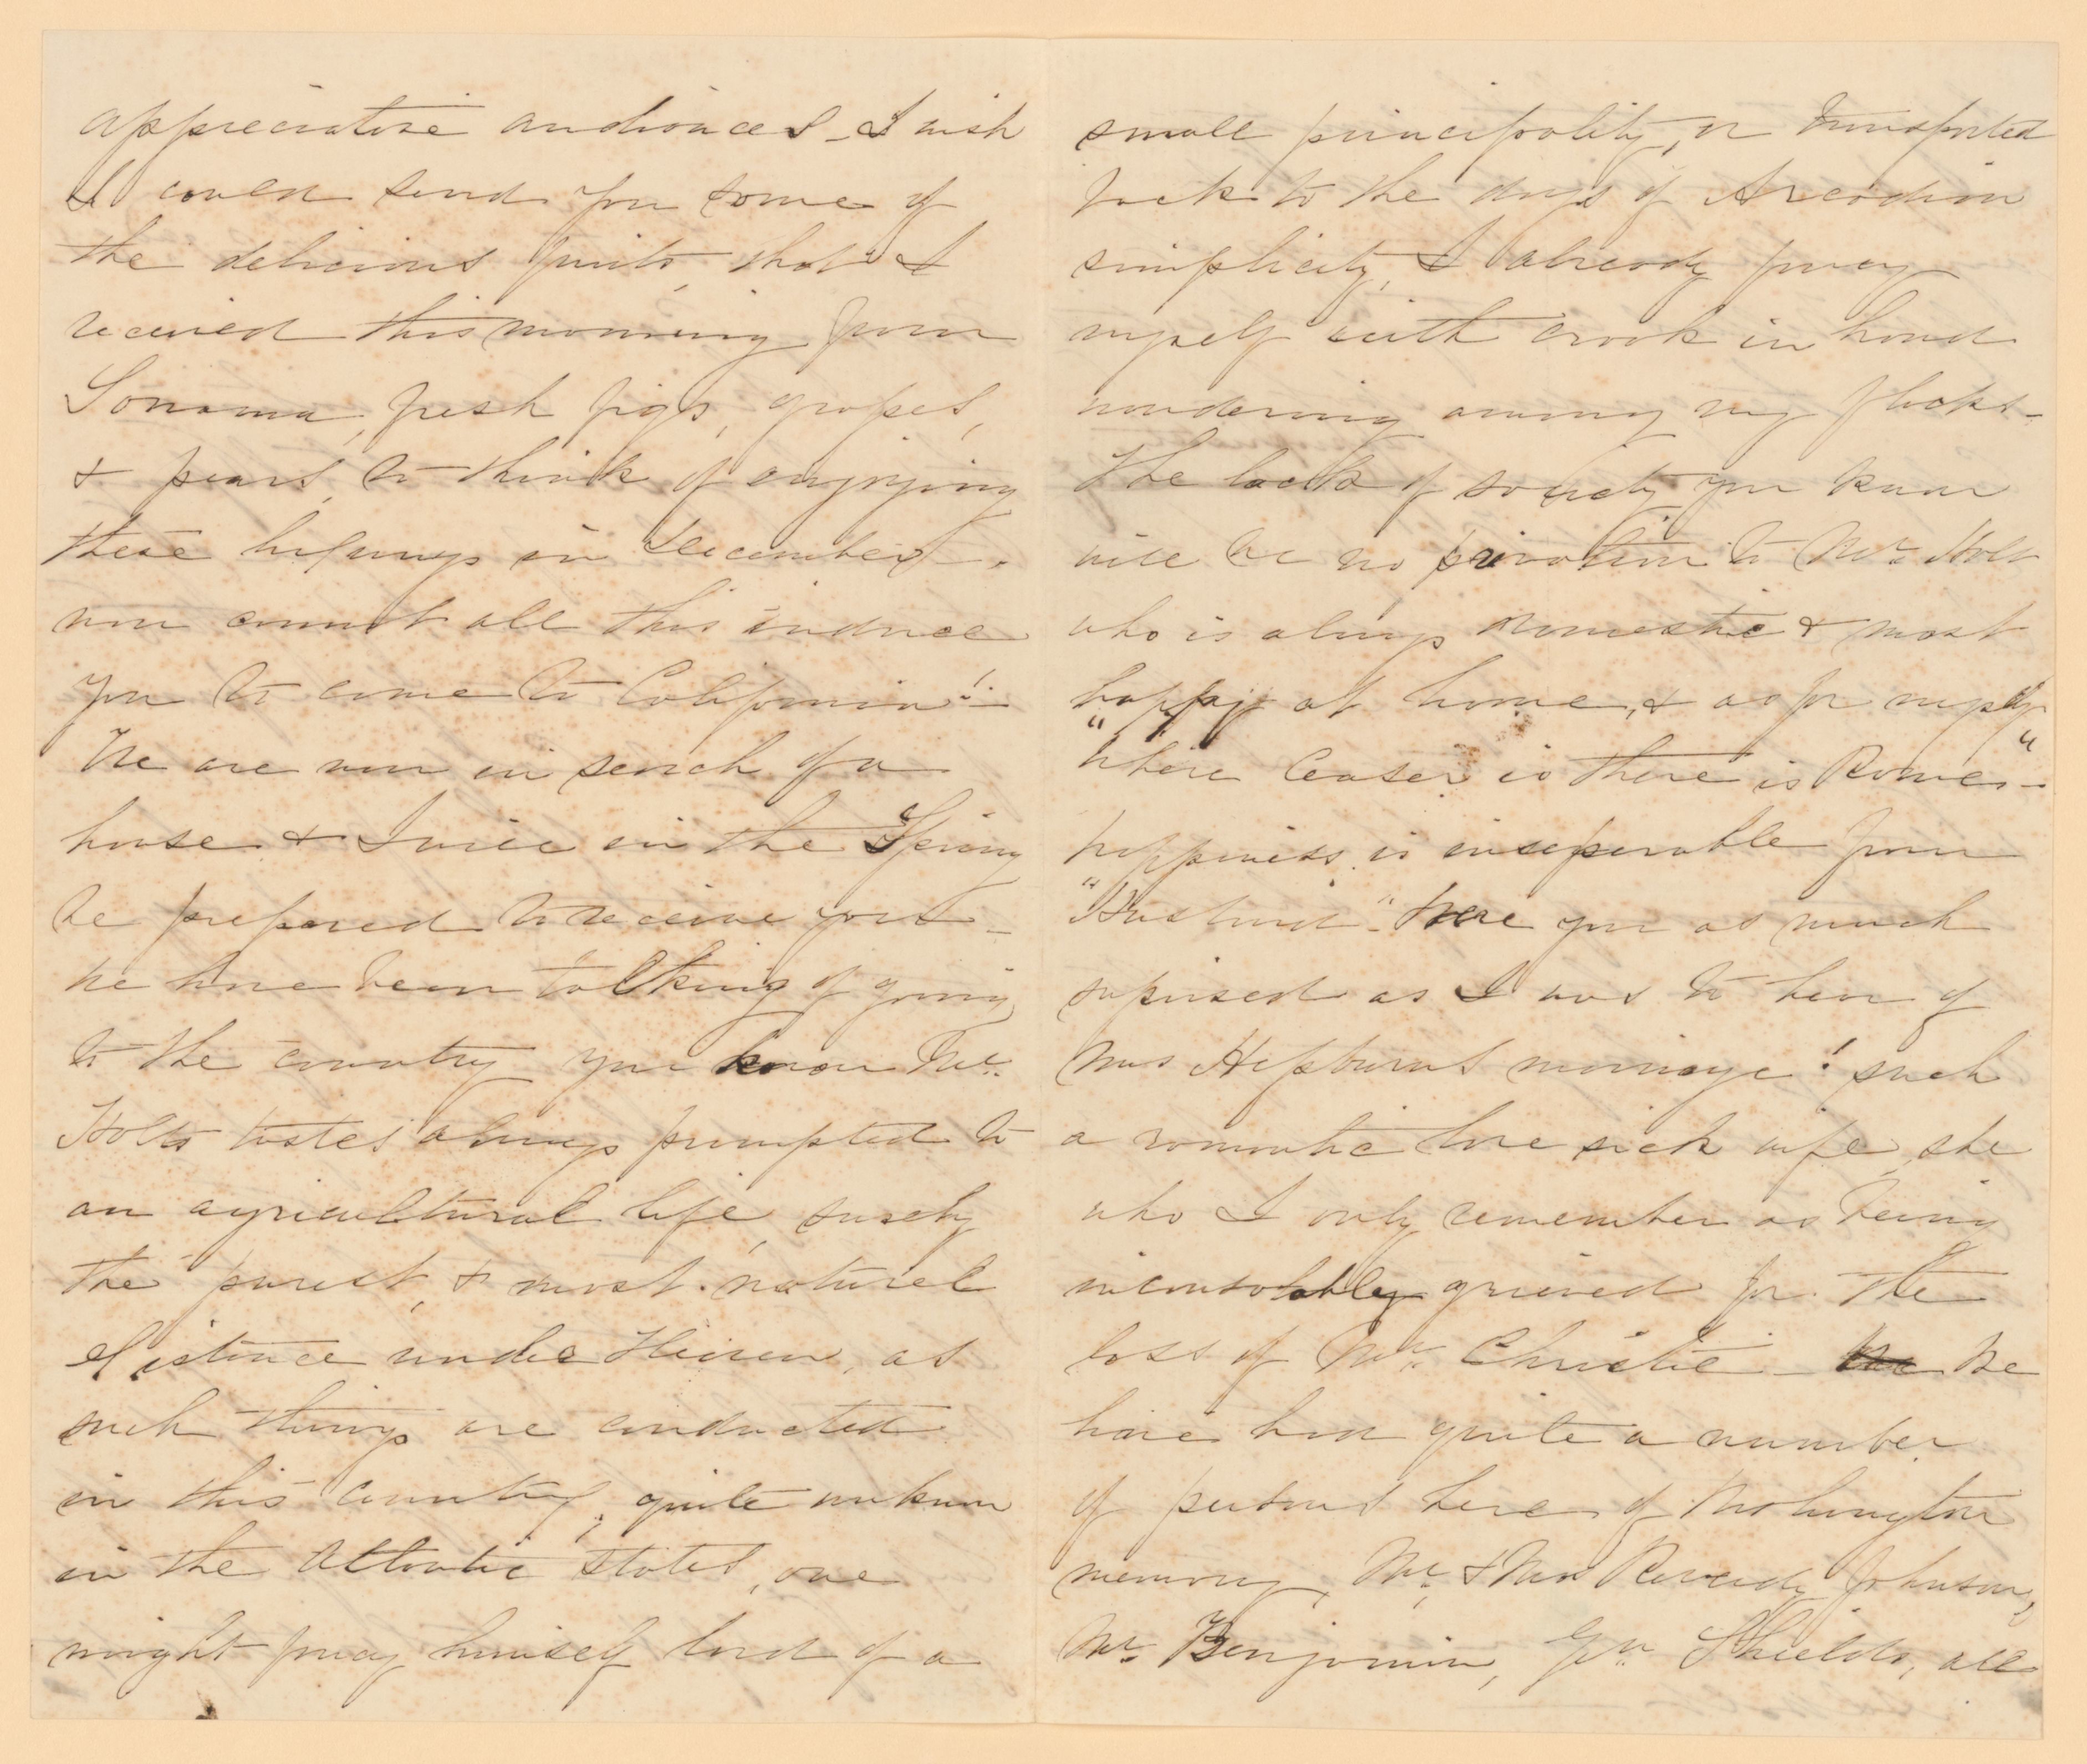 appreciative audiences – I wish
I could send you some of
the delicious fruits, that I
received this morning from
Sonoma, fresh figs, grapes,
& pears, to think of enjoying
these in December –
now cannot all this induce
you to come to California! –
We are now in search of a
house & I will in the Spring
be prepared to receive you –
we have been talking of going
to the country you know Mr.
Holts tastes always prompted to
an agricultural life, surely
the purest, & most natural
existence under Heaven, as
such things are conducted
in this country, quite unknown
in the Atlantic States, one
might fancy himself lord of a
small principality, or transported
back to the days of Arcadian
simplicity, I already fancy
myself with crook in hand
wandering among my flocks –
The lack of society you know
will be no privation to Mr. Holt
who is always domestic & most
happy at home, & as for myself
"Where Ceaser is there is Rome" –
happiness is inseperable from
"Husband" – Were you as much
suprised as I was to hear of
Mrs Hepburns marriage! such
a romantic love sick wife, she
who I only remember as being
inconsolably grieved for the
loss of Mr. Christie – We
have had quite a number
of persons here of Washington
memory, Mr. & Mrs Reverdy Johnson,
Mr. Benjamin, Gen Shields, all